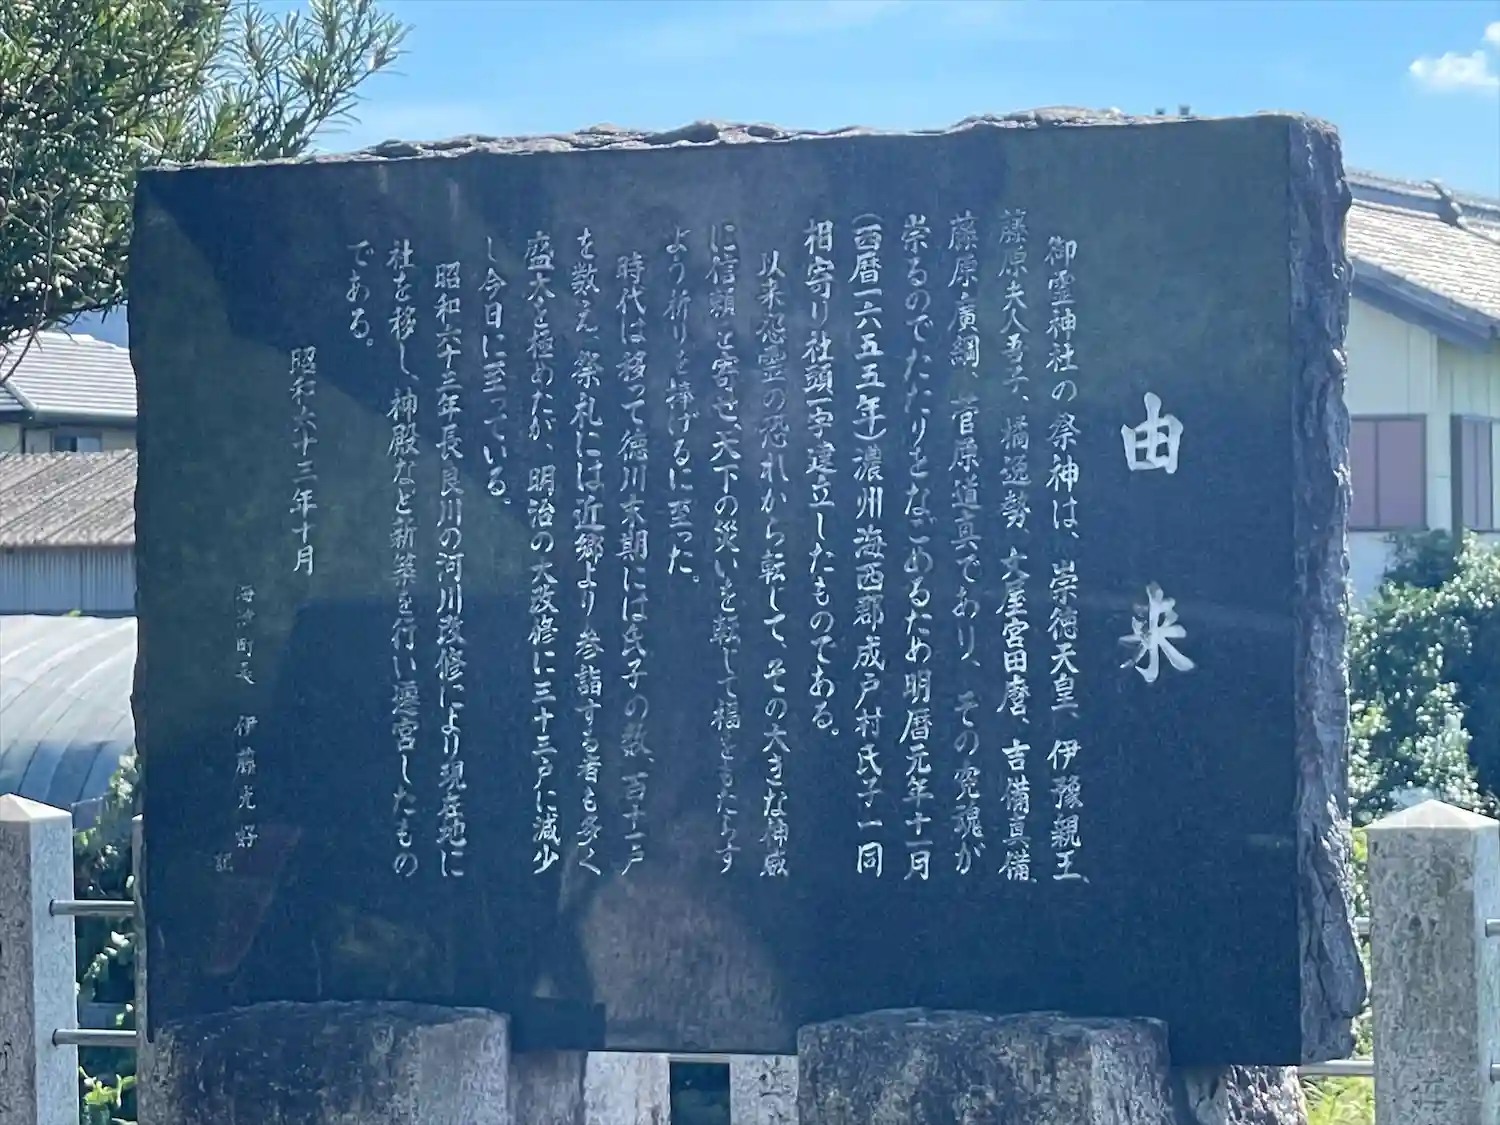 由来
御霊神社の祭神は、崇徳天皇、伊豫親王、
藤原夫人吉子、橘逸勢、文屋宮田麿、吉備真備、
藤原廣綱、菅原道真であり、その寃魂が
崇るのでたたりをなごめるため明暦元年十一月
(西暦一六五五年)濃州海西郡成戸村氏子一同
相寄り社頭一宇建立したものである。
以来怨霊の恐れから転して、その大きな神威
に信頼を寄せ、天下の災いを転じて福をもたらす
よう祈りを捧げるに至った。
時代は移って徳川末期には氏子の数、百十一戸
を数え、祭礼には近郷より参詣する者も多く
盛大を極めたが、明治の大改修に三十三戸に減少
し今日に至っている。
昭和六十三年長良川の河川改修により現在地に
社を移し、神殿など新築を行い遷宮したもの
である。
昭和六十三年十月
海津町長 伊藤光好
記